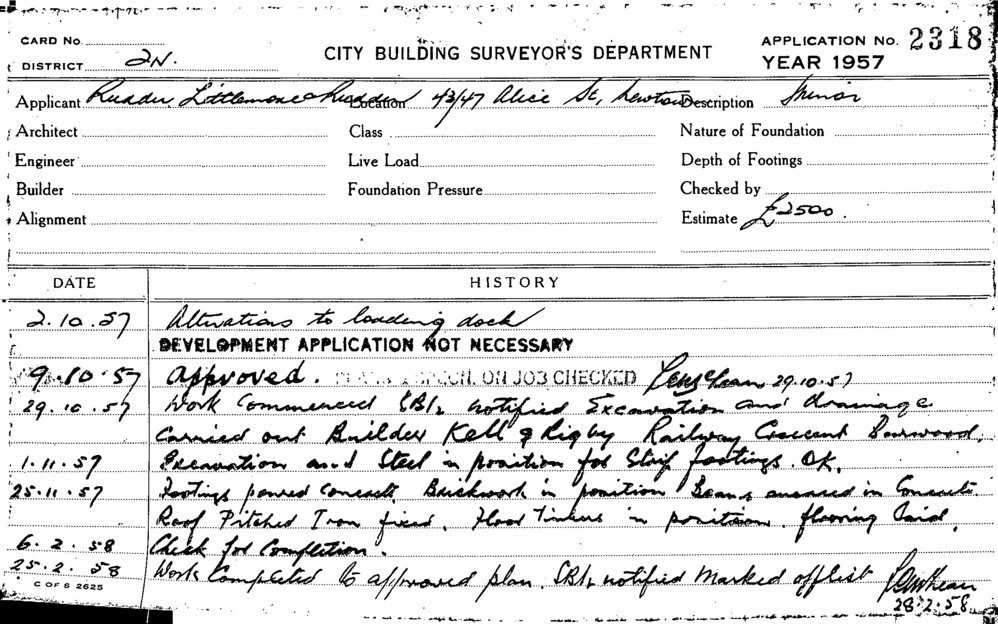 CARD No.
DISTRICT 2N.
CITY BUILDING SURVEYOR'S DEPARTMENT
APPLICATION No. 2318
YEAR 1957
Applicant Ruader Littlemore & Ruader Location 43/47 Alice St, Newtown Description Minor
Architect Class Nature of Foundation
Engineer Live Load Depth of Footings
Builder Foundation Pressure Checked by
Alignment Estimate £2500.
DATE HISTORY
2.10.57 Alterations to loading dock
DEVELOPMENT APPLICATION NOT NECESSARY
9.10.57 Approved. ON JOB CHECKED 29.10.57
29.10.57 Work Commenced notified Excavation and drainage
Carried out Builder Kell & Rigby Railway Crescent Burwood.
1.11.57 Excavation and Steel in position for Strip footings. OK.
25.11.57 Footings poured Concrete, Brickwork in position Beams encased in Concrete
Roof Pitched Iron fixed. Floor Timbers in position. flooring laid.
6.2.58 Check for Completion.
25.2.58 Work Completed to approved plan. notified Marked off list
C OF S 2625
28.2.58